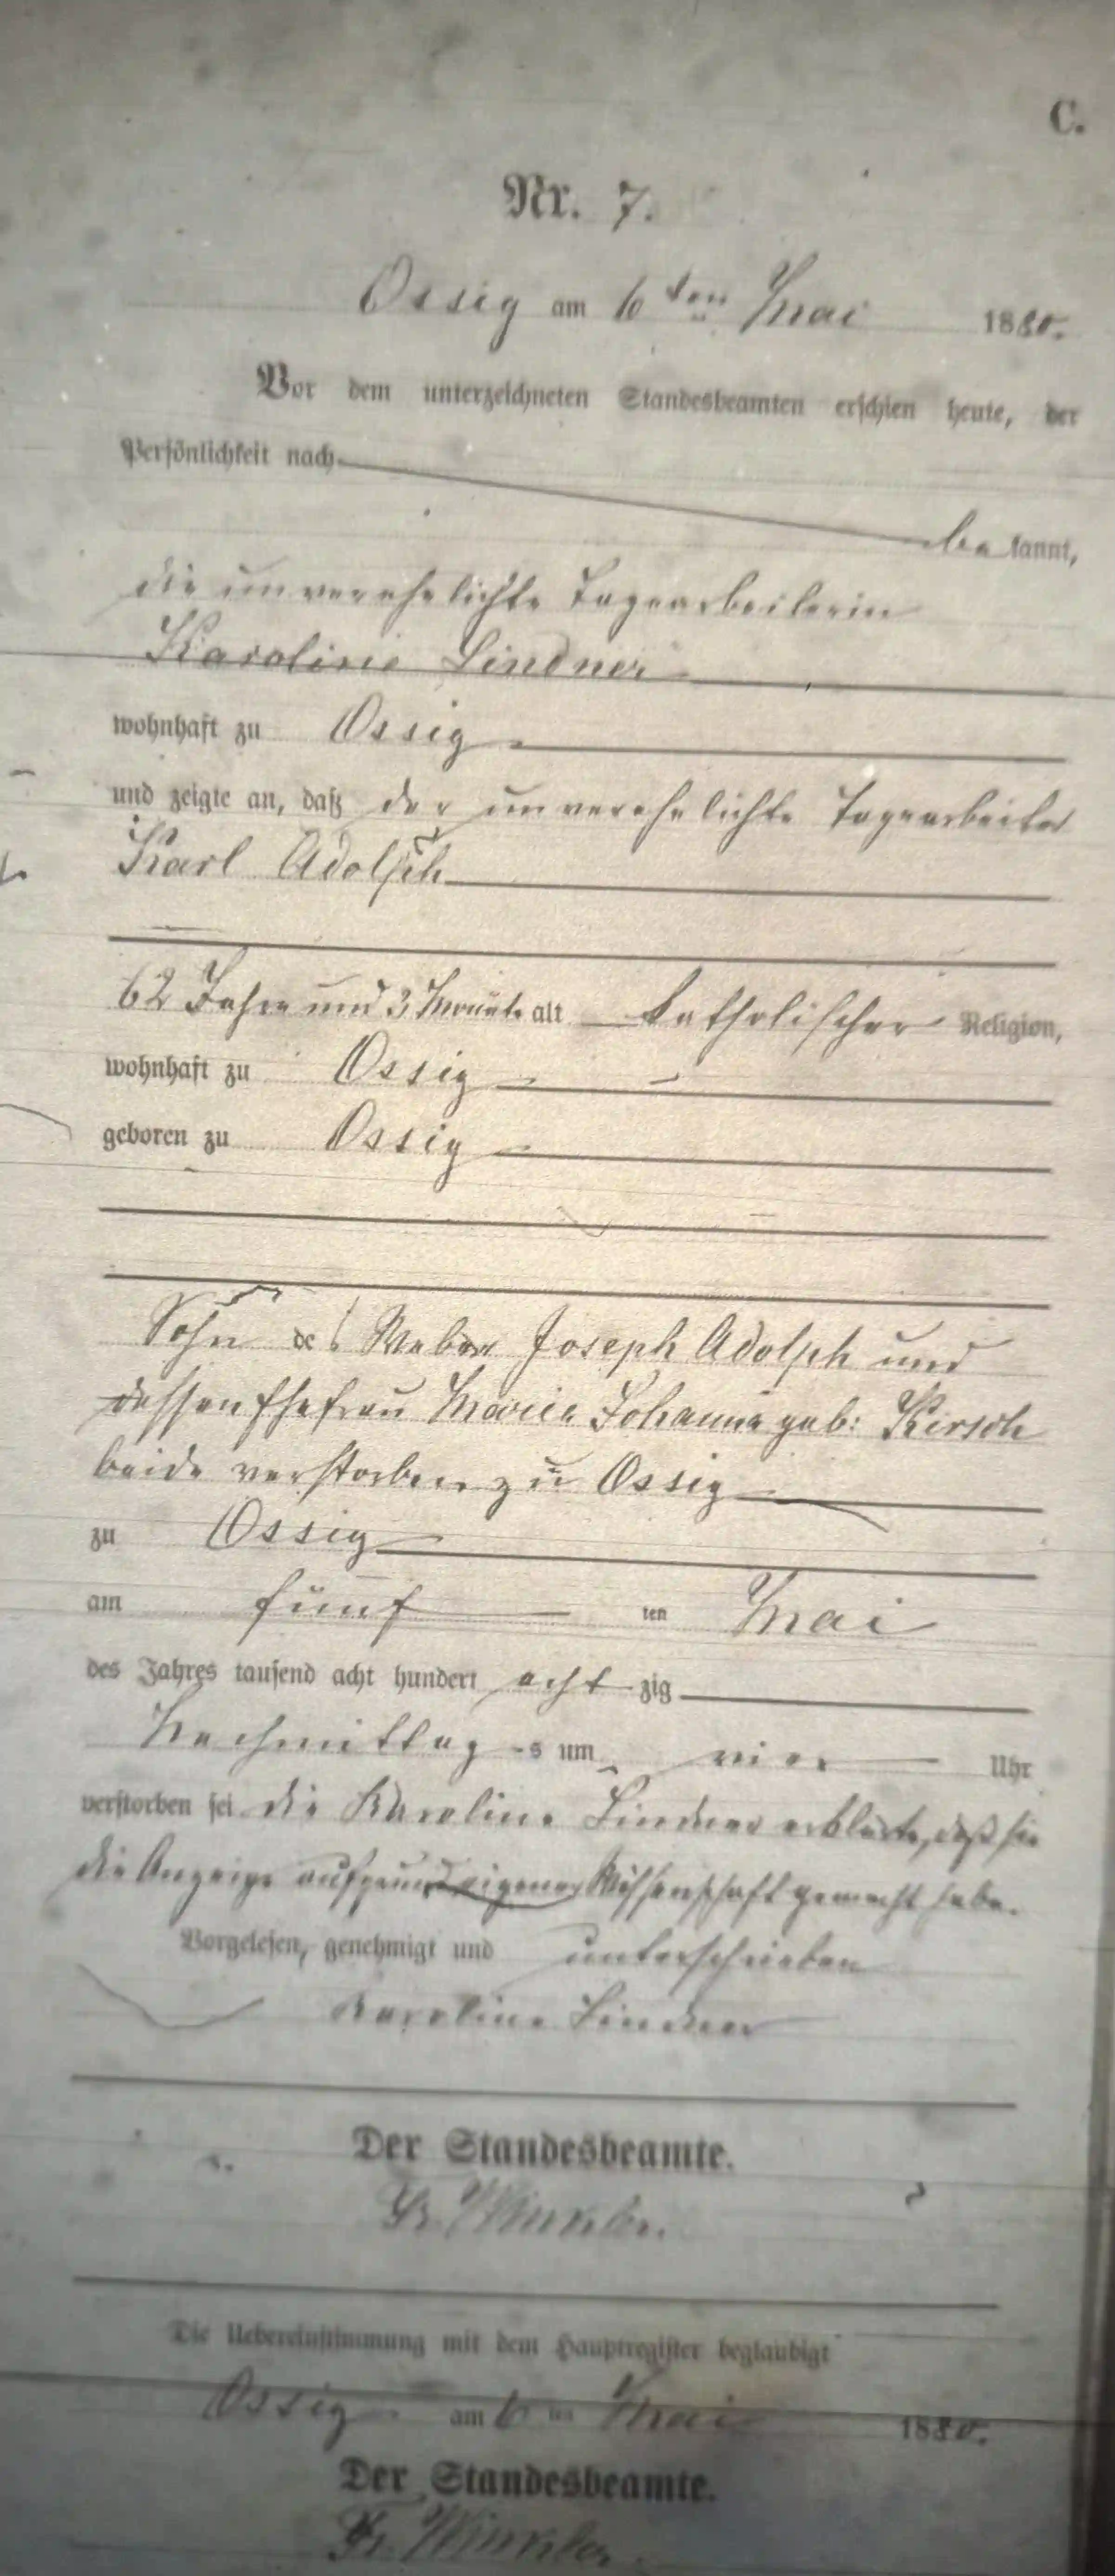 C.
Nr. 7.
Ossig am 6ten Mai 1880.
Vor dem unterzeichneten Standesbeamten erschien heute, der
Persönlichkeit nach
be kannt,
die unverehelichte Tagearbeiterin
Karoline Lindner
wohnhaft zu Ossig
und zeigte an, daß der unverehelichte Tagearbeiter
Karl Adolph
62 Jahre und 3 Monate alt katholischer Religion,
wohnhaft zu Ossig
geboren zu Ossig
Sohn des Weber Joseph Adolph und
dessen Ehefrau Marie Johanna geb: Kirsch
beide verstorben zu Ossig
zu Ossig
am fünf ten Mai
des Jahres tausend acht hundert acht zig
Nachmittag s um vier Uhr
verstorben sei die Karoline Lindner erklärte, daß sie
die Anzeige aufgrund eigener Wissenschaft gemacht habe.
Vorgelesen, genehmigt und unterschrieben
Karoline Lindner
Der Standesbeamte.
Fr. Winkler.
Die Uebereinstimmung mit dem Hauptregister beglaubigt
Ossig am 6 ten Mai 1880.
Der Standesbeamte.
Fr. Winkler.